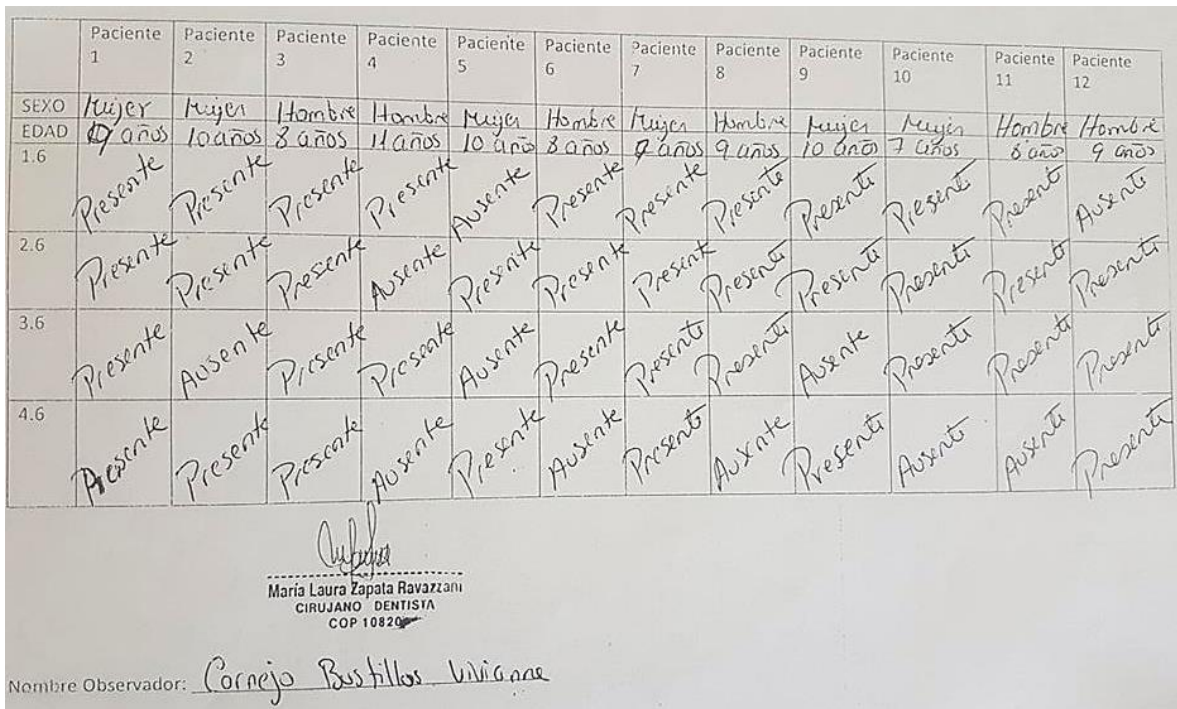 Paciente 1 Paciente 2 Paciente 3 Paciente 4 Paciente 5 Paciente 6 Paciente 7 Paciente 8 Paciente 9 Paciente 10 Paciente 11 Paciente 12
SEXO Mujer Mujer Hombre Hombre Mujer Hombre Mujer Hombre Mujer Mujer Hombre Hombre
EDAD años 10 años 8 años 11 años 10 año 8 años años 9 años 10 años 7 años 8 año 9 años
1.6 Presente Presente Presente Presente Ausente Presente Presente Presente Presente Presente Presente Ausente
2.6 Presente Presente Presente Ausente Presente Presente Presente Presente Presente Presente Presente Presente
3.6 Presente Ausente Presente Presente Ausente Presente Presente Presente Ausente Presente Presente Presente
4.6 Presente Presente Presente Ausente Presente Ausente Presente Ausente Presente Ausente Ausente Presente
María Laura Zapata Ravazzani
CIRUJANO DENTISTA
COP 10820
Nombre Observador: Cornejo Bustillos Vivianne